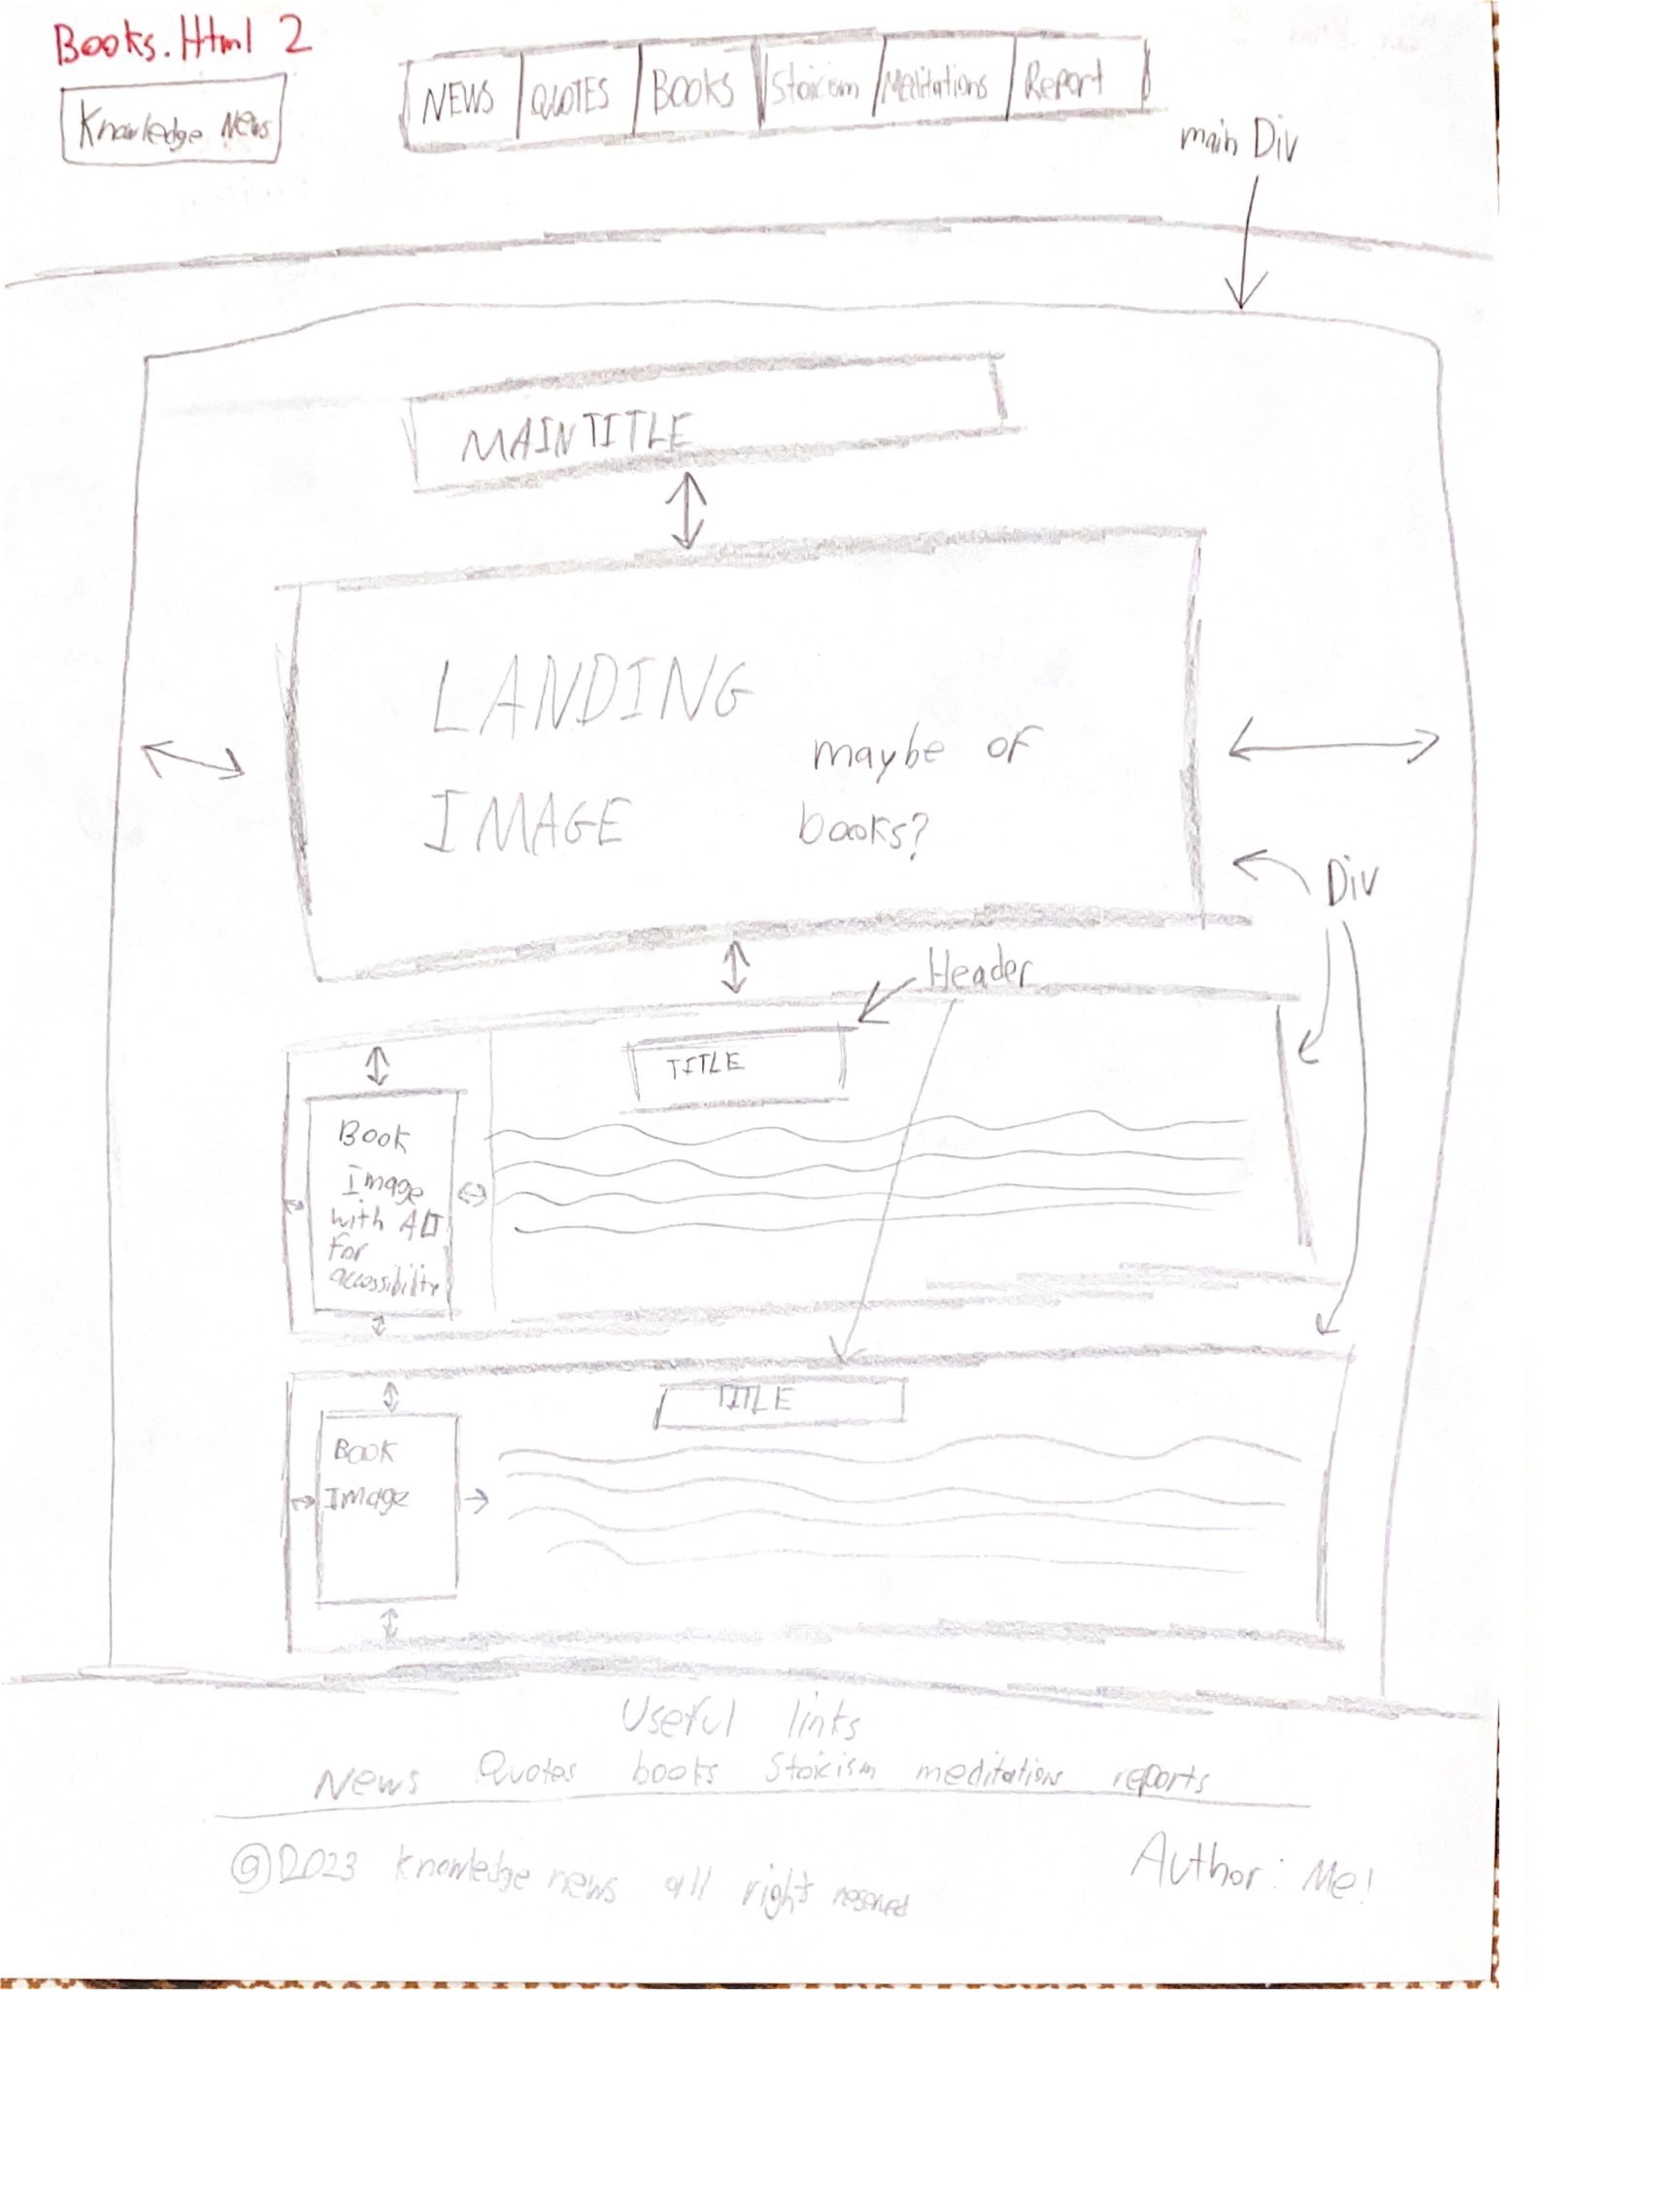 Books.Html 2
Knowledge News
NEWS QUOTES Books Stoicism Meditations Report
main Div
MAIN TITLE
LANDING
IMAGE
maybe of
books?
Div
Header
TITLE
Book
Image
with ALT
for
accessibility
TITLE
Book
Image
Useful links
News Quotes books Stoicism meditations reports
©2023 knowledge news all right reserved
Author: Me!